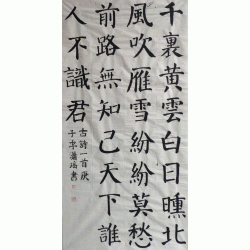 千裏黃雲白日曛北
風吹雁雪紛紛莫愁
前路無知己天下誰
人不識君
古詩一首歲